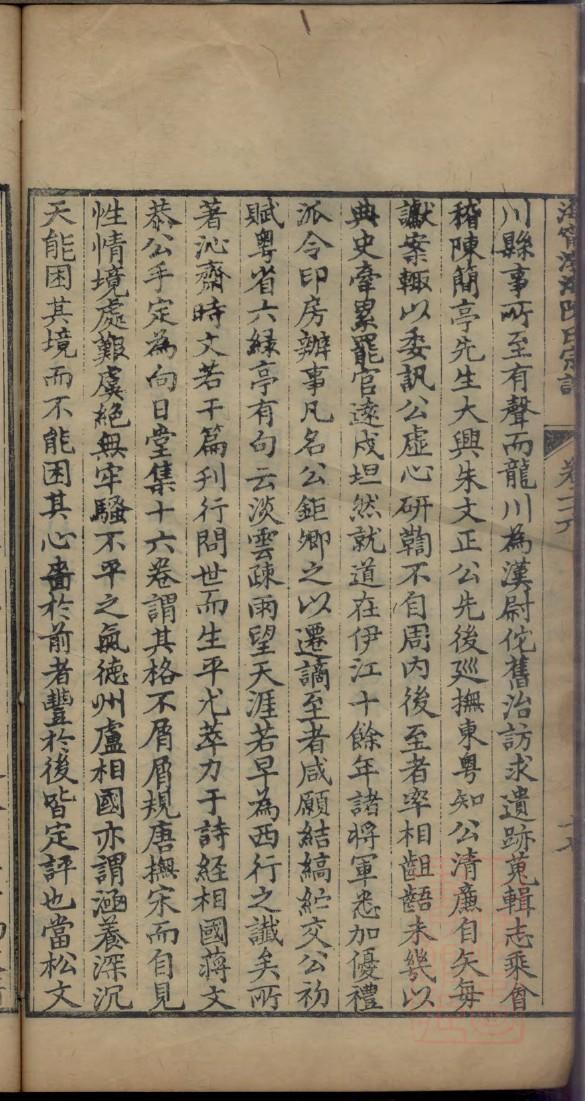 海寧渤海陳氏宗譜
卷二六
川縣事所至有聲而龍川為漢尉佗舊治訪求遺跡蒐輯志乘會
稽陳簡亭先生大興朱文正公先後廵撫東粤知公清廉自矢每
讞案輙以委訊公虛心研鞫不自周内後至者率相齟齬未幾以
典史牽累罷官遠戍坦然就道在伊江十餘年諸將軍悉加優禮
派令印房辦事凡名公鉅卿之以遷謫至者咸願結縞紵交公初
賦粤省六緑亭有句云淡雲疎雨望天涯若早為西行之讖矣所
著沁齋時文若干篇刊行問世而生平尤萃力于詩経相國蔣文
恭公手定為向日堂集十六卷謂其格不屑屑規唐撫宋而自見
性情境處艱虞絕無牢騷不平之氣德州盧相國亦謂涵養深沉
天能困其境而不能困其心嗇於前者豐於後皆定評也當松文